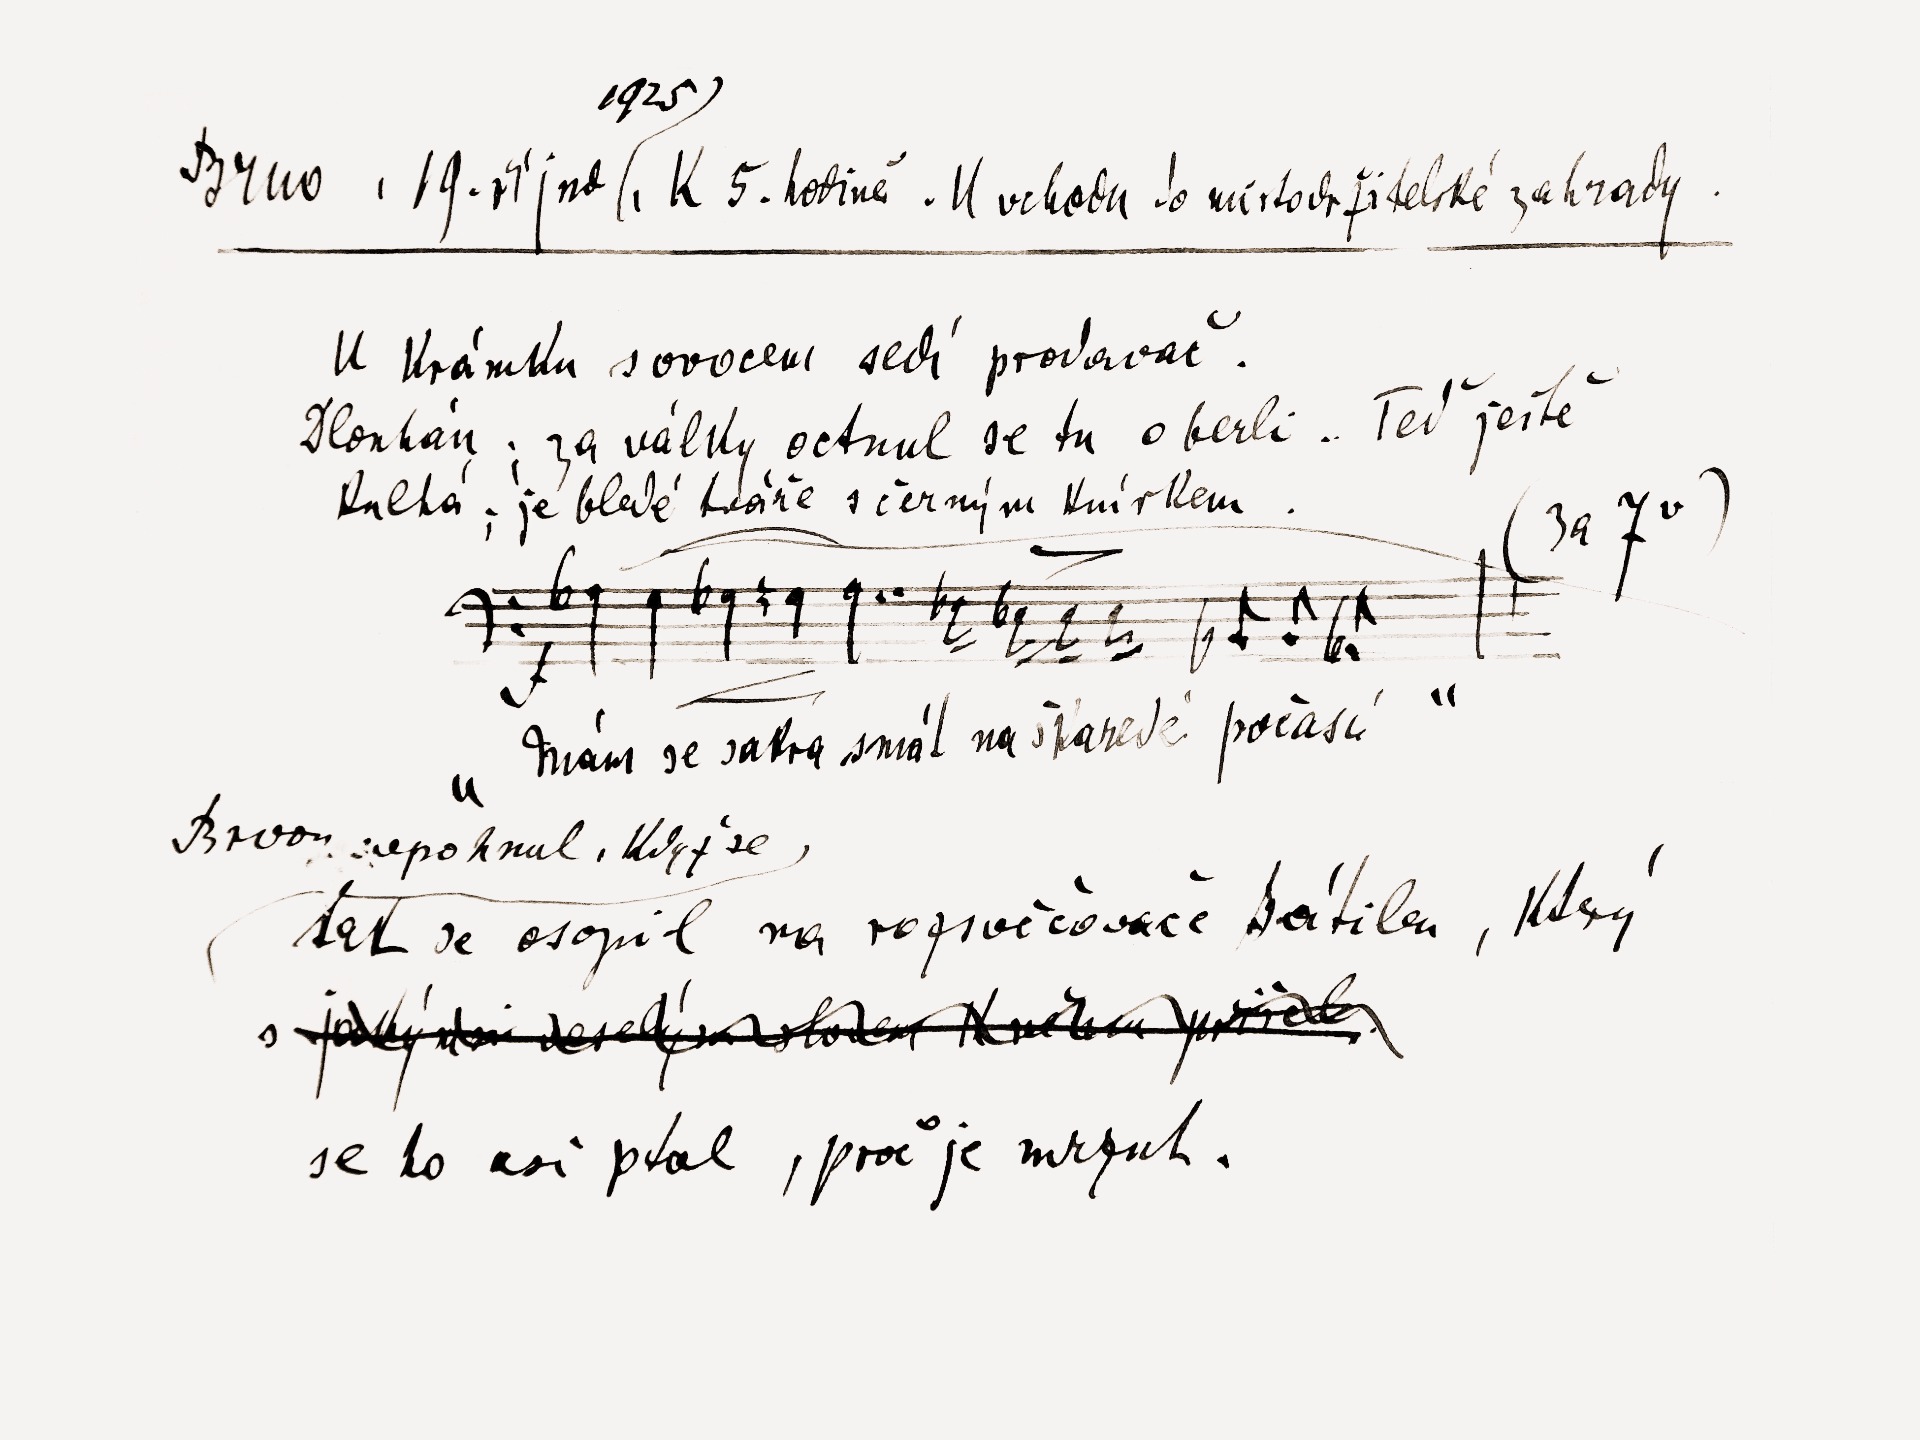 1925
Brno, 19. října, K 5. hodině. U vchodu do místodržitelské zahrady.
U krámku s ovocem sedí prodavač.
Dlouhán; za války octnul se tu o berli.. Teď ještě
kulhá; je bledé tváře s černým knírkem.
(za 7v)
f
„Mám se sakra smát na škaredé počasí“
Brvou nepohnul, když se
tak se osopil na rozsvěcovače svítilen, který
s jakýmsi veselým slovem k němu přišel.
se ho asi ptal, proč je mrzut.